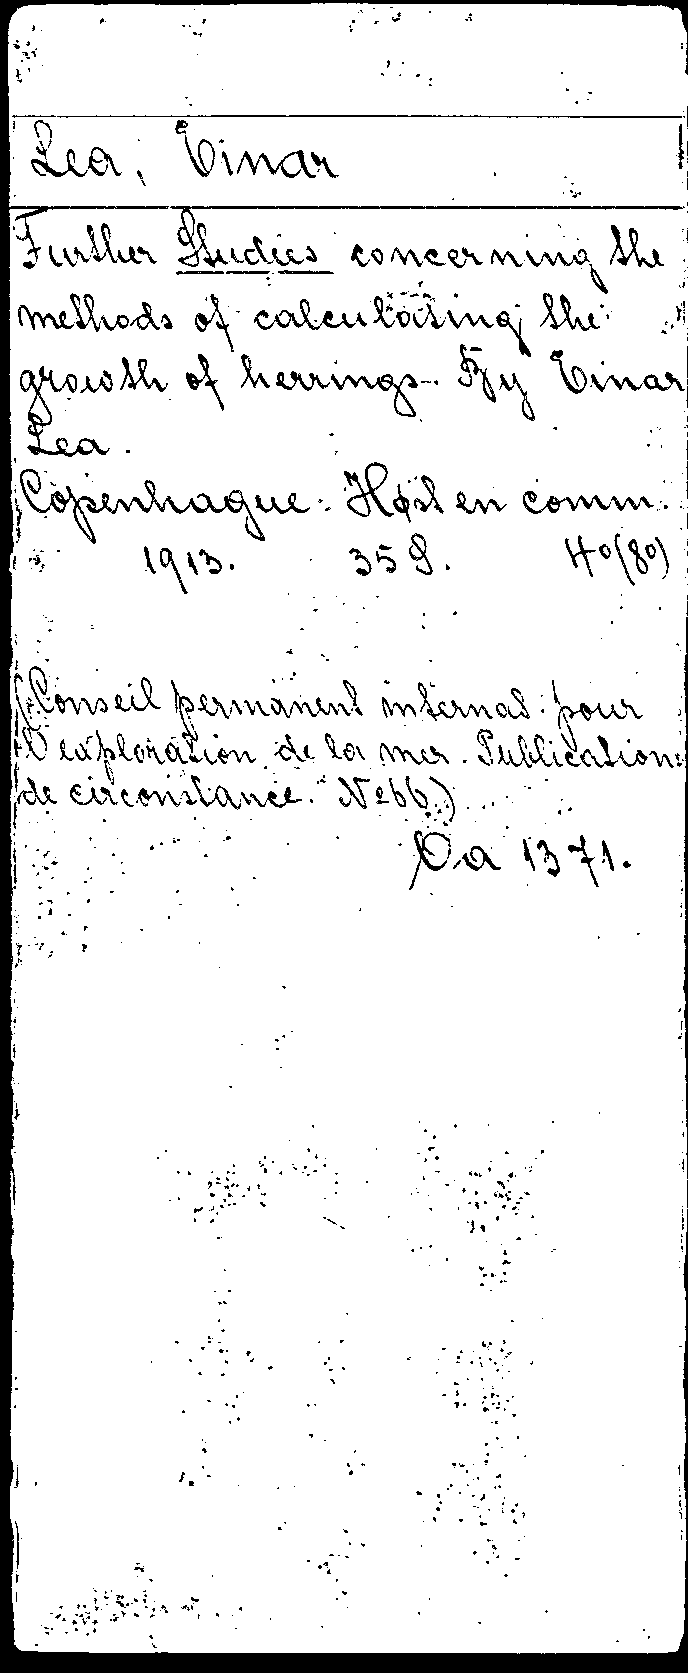 Lea, Einar
Further Studies concerning the
methods of calculating the
growth of herrings. By Einar
Lea.
Copenhague: Høst en comm.
1913. 35 S. 4°(8°)
(Conseil permanent internat. pour
l'exploration de la mer. Publications
de circonstance. No 66)
Oa 1371.